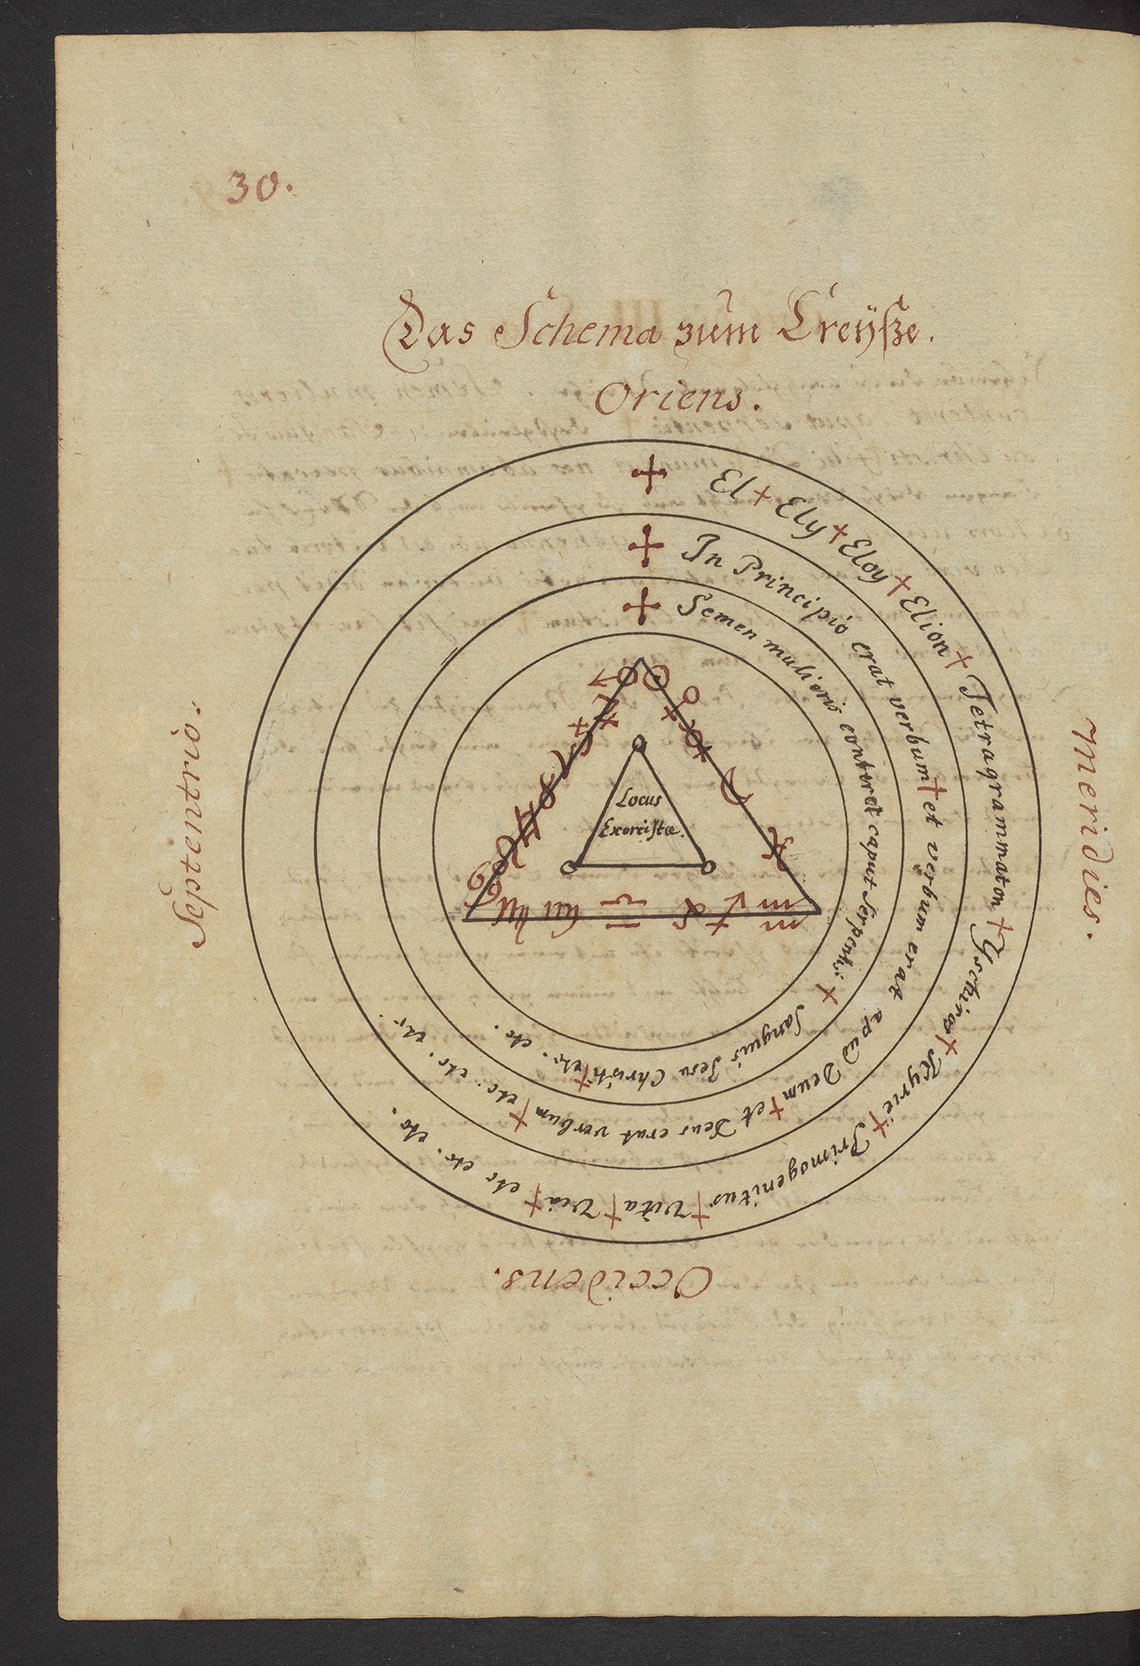 30.
Das Schema zum Creÿße.
Oriens.
✝ El ✝ Ely ✝ Eloy ✝ Elion ✝ Tetragrammaton ✝ Yschiros ✝ Kyrie ✝ Primogenitus ✝ Vita ✝ Via ✝ etc etc. etc.
✝ In Principio erat verbum ✝ et verbum erat apud Deum ✝ et Deus erat verbum ✝ etc. etc. etc.
✝ Semen mulieris conteret caput Serpentis ✝ Sanguis Jesu Christi ✝ etc. etc.
Locus
Exorcistæ.
Septentrio.
Meridies.
Occidens.